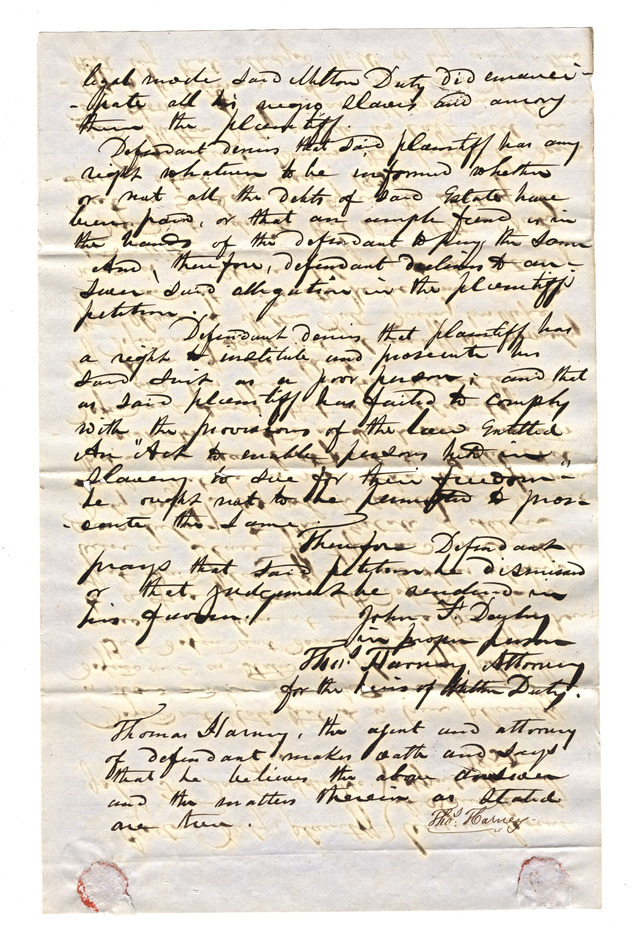 legal mode said Milton Duty did emanci-
-pate all his negro slaves and among
them the plaintiff.
Defendant denies that said plaintiff has any
right whatever to be informed whether
or not all the debts of said Estate have
been paid, or that an ample fund is in
the hands of the defendant to pay the same
And, therefore, defendant declines to an-
swer said allegation in the plaintiff's
petition.
Defendant denies that plaintiff has
a right to institute and prosecute his
said suit as a poor person; and that
as said plaintiff has failed to comply
with the provisions of the law Entitled
An "Act to enable persons held in
slavery to sue for their freedom"
he ought not to be permitted to pros-
ecute the same.
Therefore Defendant
prays that said petition be dismissed
or that judgement be rendered in
his favor.
John F. Darby
in proper person
Thos. Harney Attorney
for the heirs of Milton Duty.
Thomas Harney, the agent and attorney
of defendant makes oath and says
that he believes the above answer
and the matters therein as stated
are true.
Thos. Harney